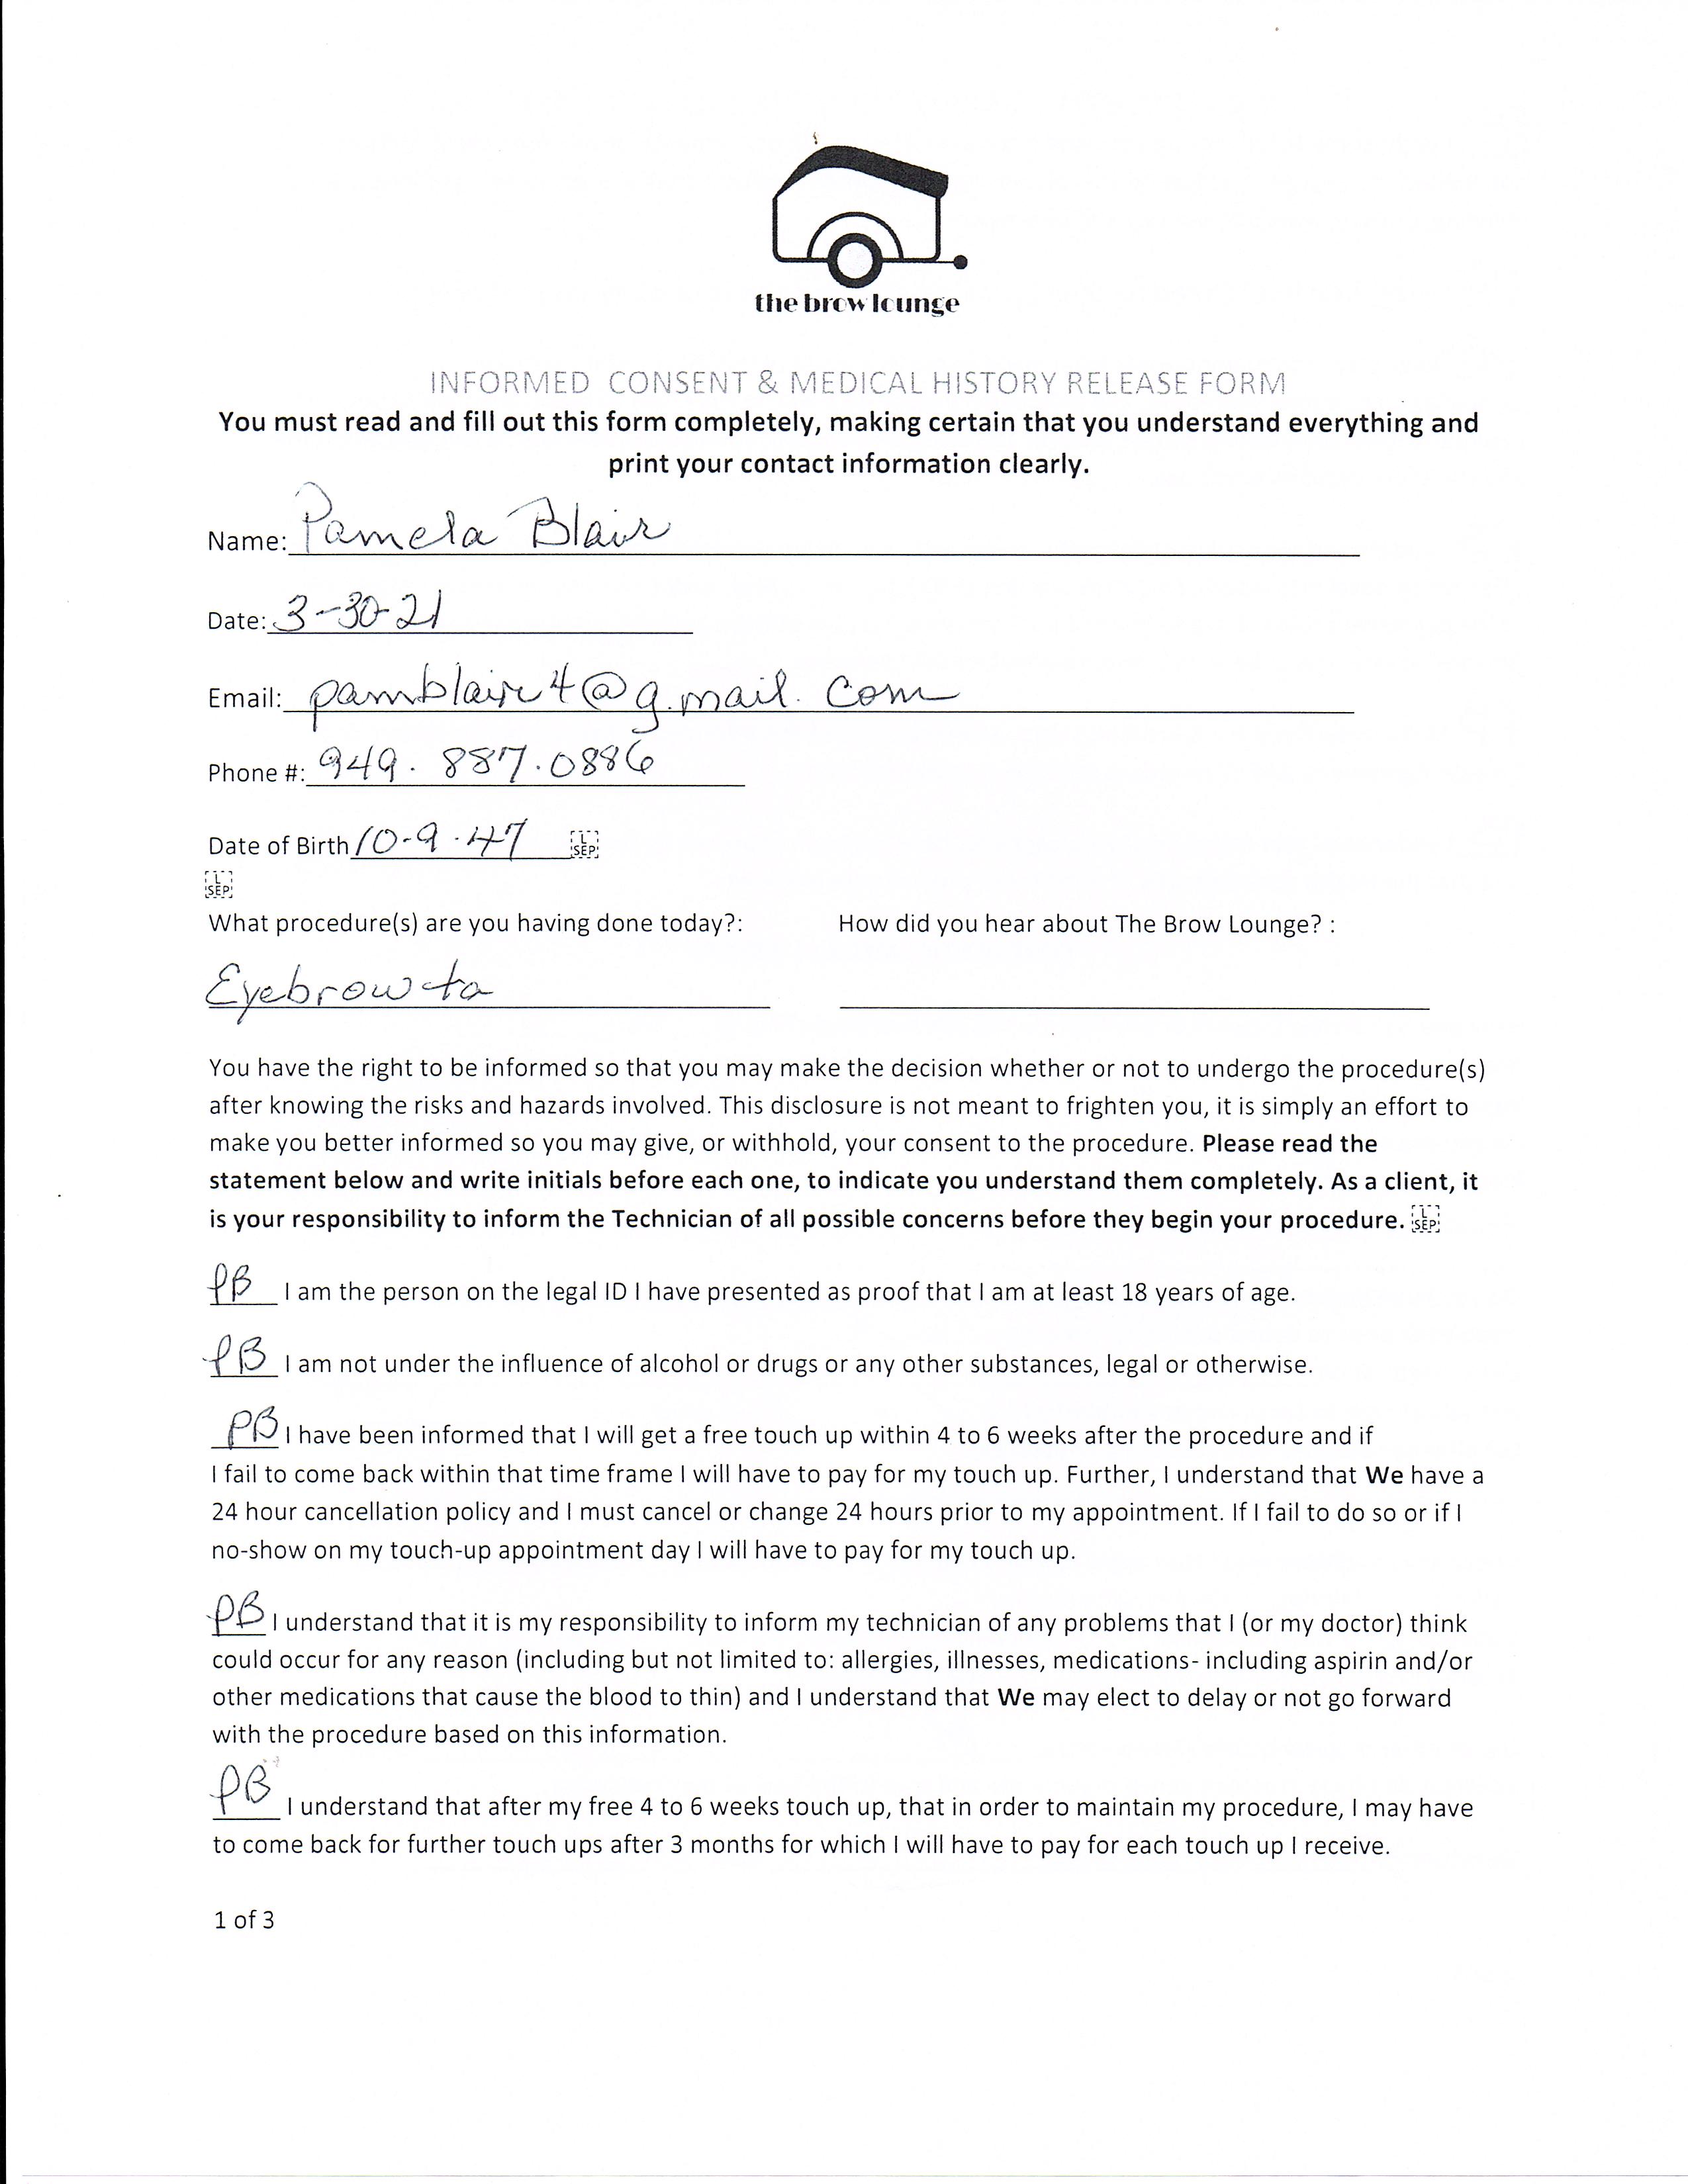 the brow lounge
INFORMED CONSENT & MEDICAL HISTORY RELEASE FORM
You must read and fill out this form completely, making certain that you understand everything and
print your contact information clearly.
Name: Pamela Blair
Date: 3-30-21
Email: pamblair4@g.mail.com
Phone #: 949.887.0886
Date of Birth 10-9-47 L SEP
L SEP
What procedure(s) are you having done today?: How did you hear about The Brow Lounge? :
Eyebrow ta
You have the right to be informed so that you may make the decision whether or not to undergo the procedure(s)
after knowing the risks and hazards involved. This disclosure is not meant to frighten you, it is simply an effort to
make you better informed so you may give, or withhold, your consent to the procedure. Please read the
statement below and write initials before each one, to indicate you understand them completely. As a client, it
is your responsibility to inform the Technician of all possible concerns before they begin your procedure. L SEP
PB I am the person on the legal ID I have presented as proof that I am at least 18 years of age.
PB I am not under the influence of alcohol or drugs or any other substances, legal or otherwise.
PB I have been informed that I will get a free touch up within 4 to 6 weeks after the procedure and if
I fail to come back within that time frame I will have to pay for my touch up. Further, I understand that We have a
24 hour cancellation policy and I must cancel or change 24 hours prior to my appointment. If I fail to do so or if I
no-show on my touch-up appointment day I will have to pay for my touch up.
PB I understand that it is my responsibility to inform my technician of any problems that I (or my doctor) think
could occur for any reason (including but not limited to: allergies, illnesses, medications- including aspirin and/or
other medications that cause the blood to thin) and I understand that We may elect to delay or not go forward
with the procedure based on this information.
PB I understand that after my free 4 to 6 weeks touch up, that in order to maintain my procedure, I may have
to come back for further touch ups after 3 months for which I will have to pay for each touch up I receive.
1 of 3